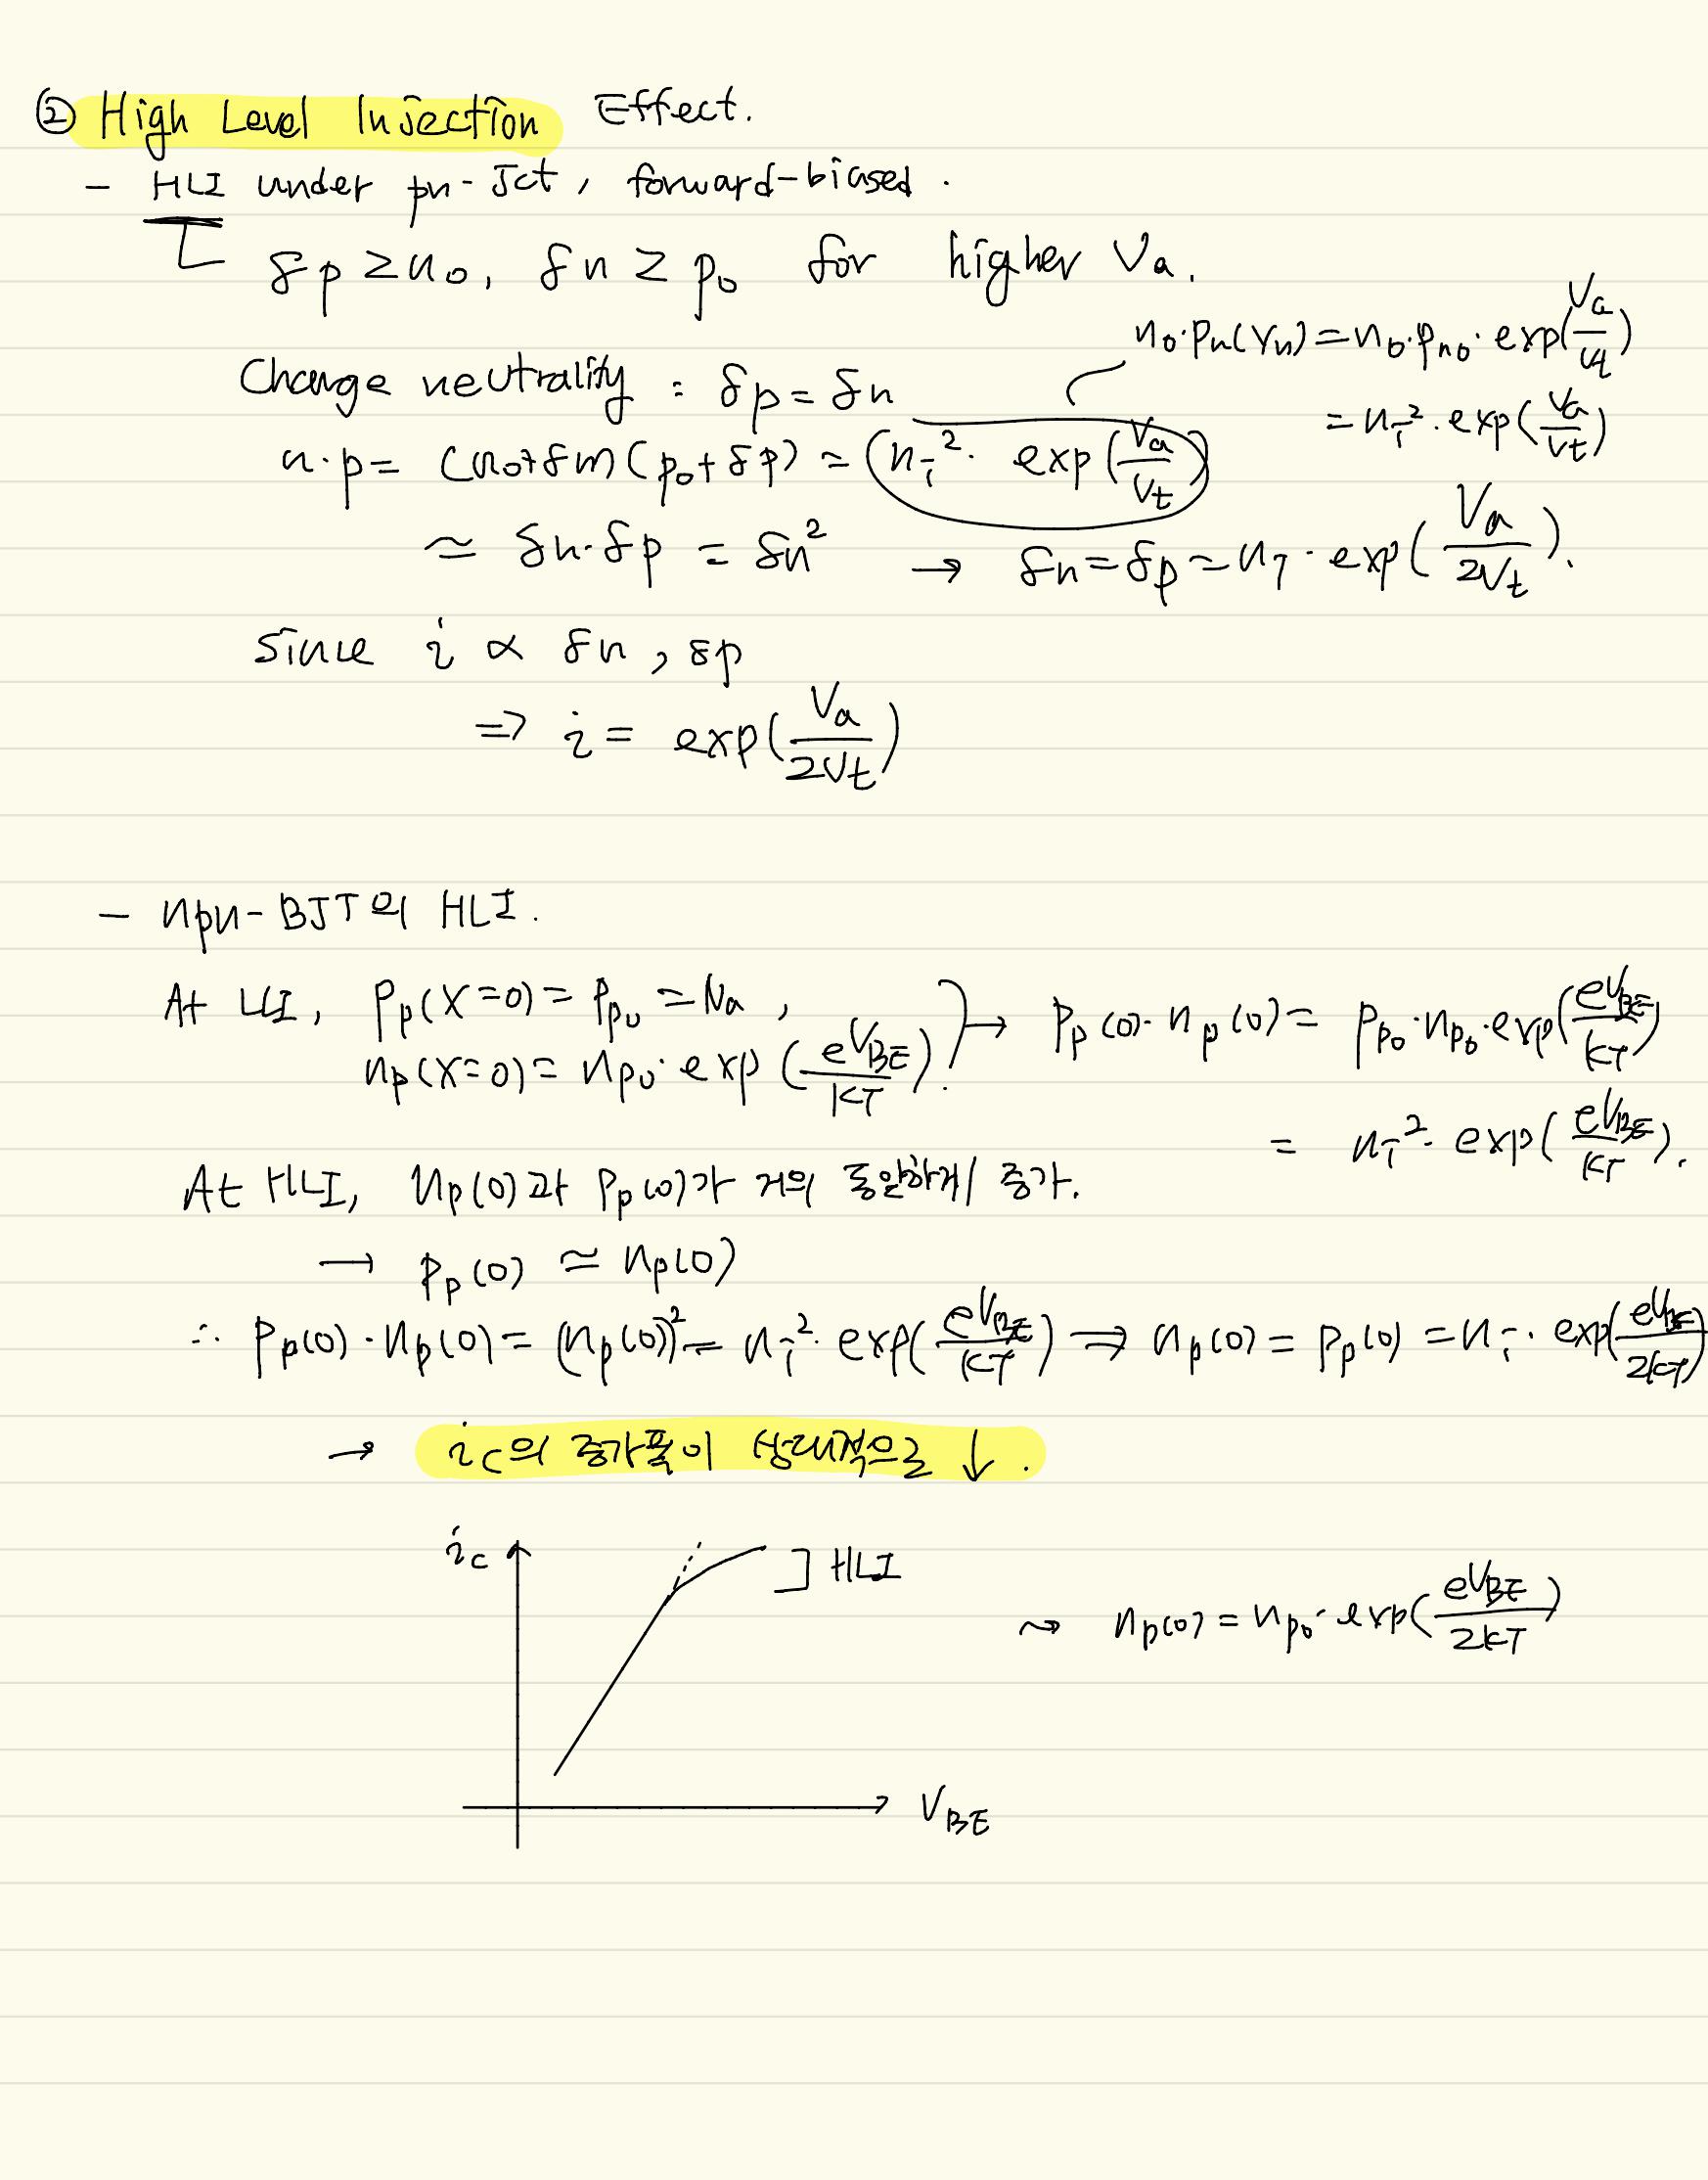 ② High Level Injection Effect.
- HLI under pn-Jct, forward-biased.
δp ≥ n₀, δn ≥ p₀ for higher Va.
n₀·pₙ(xₙ) = n₀·pₙ₀·exp(Va/Vt)
= nᵢ²·exp(Va/Vt)
Charge neutrality : δp = δn
n·p = (n₀+δn)(p₀+δp) = (nᵢ²· exp(Va/Vt))
≃ δn·δp = δn² → δn = δp ≃ nᵢ·exp(Va/2Vt).
since i ∝ δn, δp
⇒ i = exp(Va/2Vt)
- npn-BJT의 HLI.
At LLI, Pp(x=0) = Ppo = Na ,
np(x=0) = npo·exp(eVBE/kT). → Pp(0)·np(0) = Ppo·npo·exp(eVBE/kT)
= nᵢ²·exp(eVBE/kT).
At HLI, np(0)과 Pp(0)가 거의 동일하게 증가.
→ Pp(0) ≃ np(0)
∴ Pp(0)·np(0) = (np(0))² = nᵢ²·exp(eVBE/kT) ⇒ np(0) = Pp(0) = nᵢ·exp(eVBE/2kT)
→ ic의 증가폭이 상대적으로 ↓.
ic
HLI
⤳ np(0) = npo·exp(eVBE/2kT)
VBE